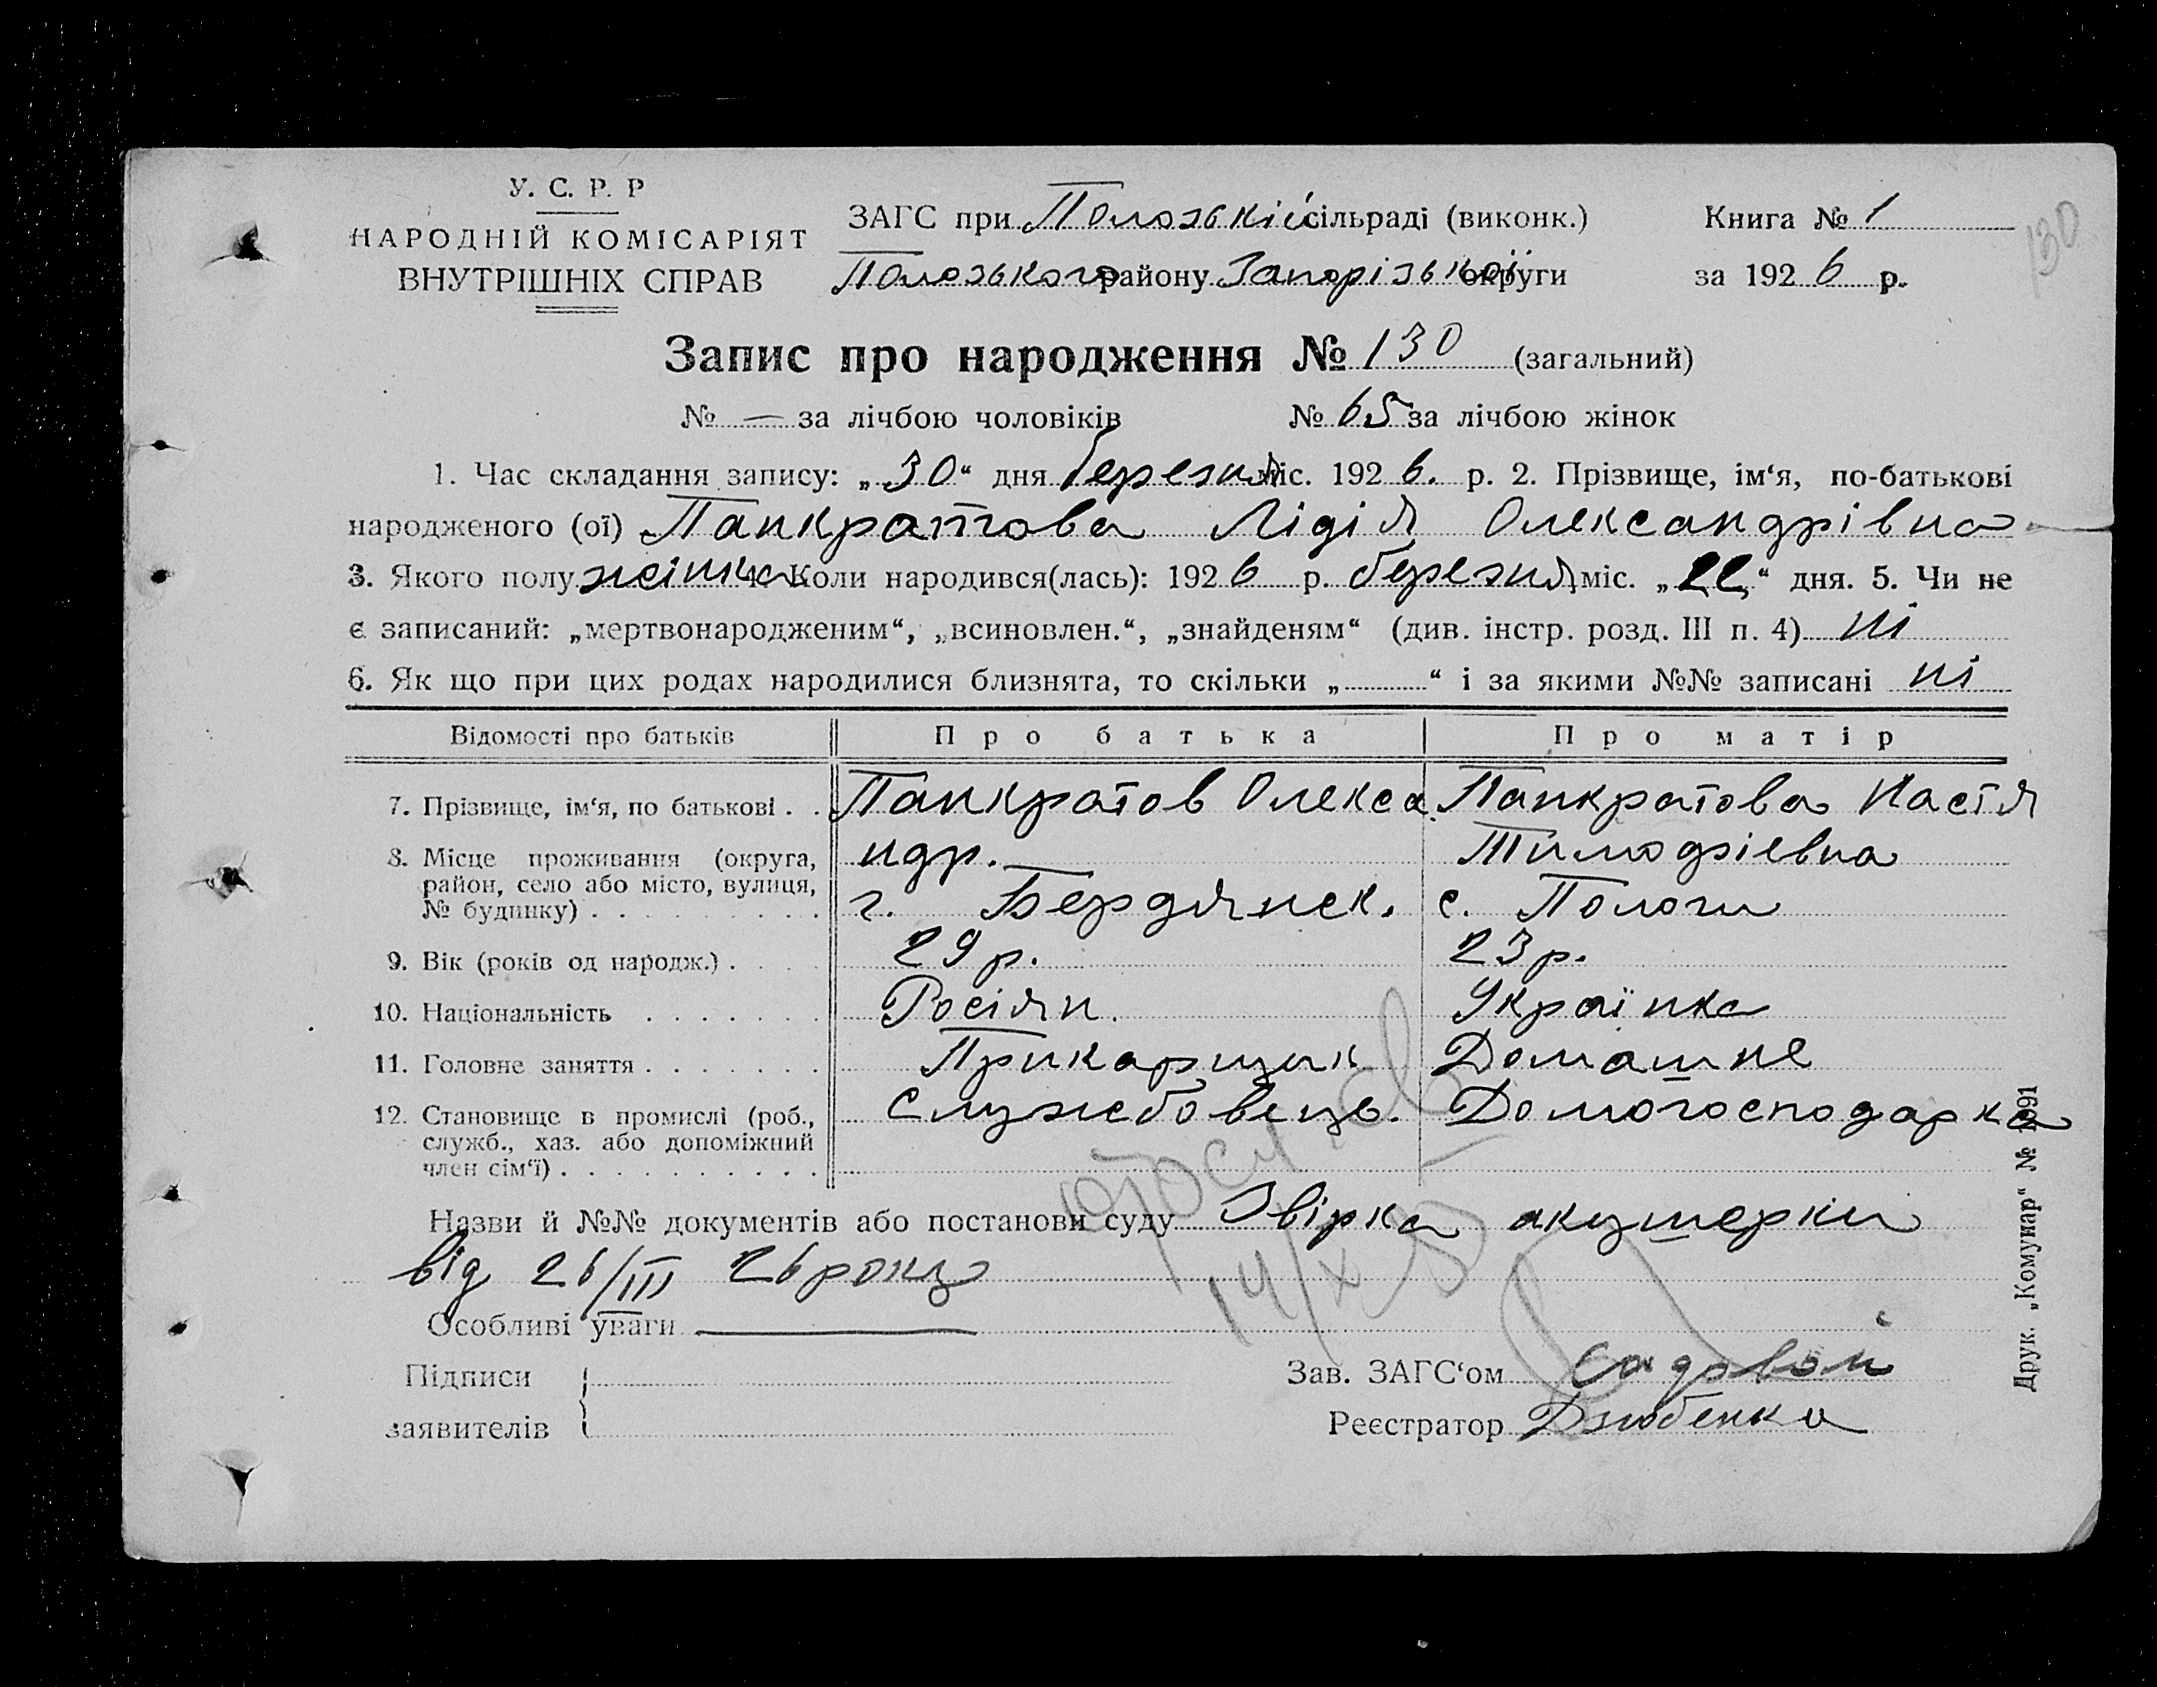 У. С. Р. Р
НАРОДНІЙ КОМІСАРІЯТ
ВНУТРІШНІХ СПРАВ
ЗАГС при Полозькій сільраді (виконк.)
Полозького району Запорізької округи
Книга № 1
за 1926 р.
130
Запис про народження № 130 (загальний)
№ — за лічбою чоловіків № 65 за лічбою жінок
1. Час складання запису: „30“ дня березня міс. 1926. р. 2. Прізвище, ім‘я, по-батькові
народженого (ої) Панкратова Лідія Олександрівна
3. Якого полу жінка 4. Коли народився(лась): 1926 р. березня міс. „22“ дня. 5. Чи не
є записаний: „мертвонародженим“, „всиновлен.“, „знайденям“ (див. інстр. розд. III п. 4) ні
6. Як що при цих родах народилися близнята, то скільки „ “ і за якими №№ записані ні
Відомості про батьків Про батька Про матір
7. Прізвище, ім‘я, по батькові . . Панкратов Олекса Панкратова Настя
8. Місце проживання (округа, ндр. Тимофіевна
район, село або місто, вулиця,
№ будинку) . . . . . . . . г. Бердянск. с. Пологи
9. Вік (років од народж.) . . . . 29 р. 23 р.
10. Національність . . . . . . . Росіян. Українка
11. Головне заняття . . . . . . . Прикарщик Домашне
12. Становище в промислі (роб., Службовець. Домогосподарка
служб., хаз. або допоміжний
член сім‘ї) . . . . . . . . . . .
Назви й №№ документів або постанови суду Звірка акушерки
від 26/III 26 року
14/X
Особливі уваги —
Підписи
заявителів
Зав. ЗАГС‘ом Садовой
Реєстратор Дзюбенко
Друк. „Комунар“ №